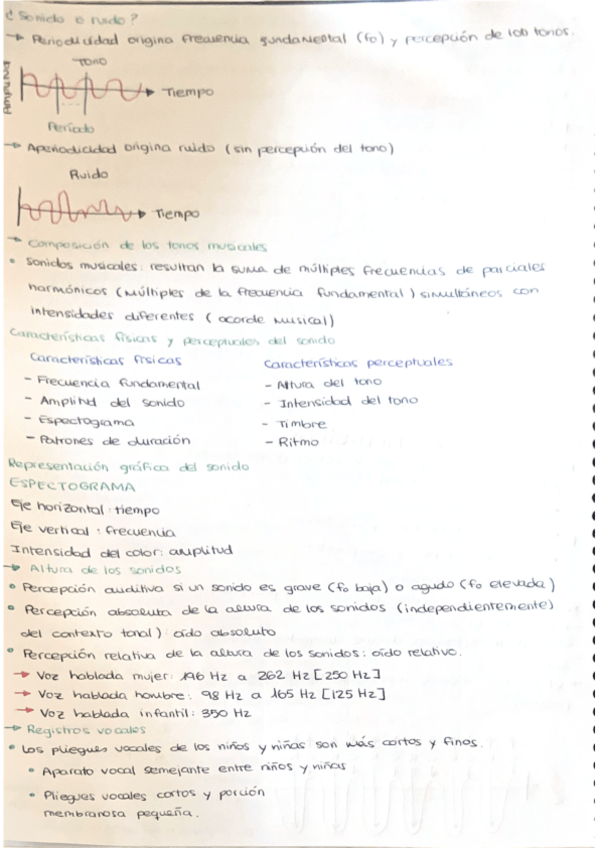 ¿ Sonido o ruido?
→ Periodicidad origina frecuencia fundamental (fo) y percepción de los tonos.
TONO
Amplitud
Tiempo
Período
→ Aperiodicidad origina ruido (sin percepción del tono)
Ruido
Tiempo
→ Composición de los tonos musicales
• Sonidos musicales: resultan la suma de múltiples frecuencias de parciales
harmónicos (múltiples de la frecuencia fundamental) simultáneos con
intensidades diferentes (acorde musical)
Características físicas y perceptuales del sonido
Características físicas
Características perceptuales
- Frecuencia fundamental
- Altura del tono
- Amplitud del sonido
- Intensidad del tono
- Espectograma
- Timbre
- Patrones de duración
- Ritmo
Representación gráfica del sonido
ESPECTOGRAMA
Eje horizontal: tiempo
Eje vertical: frecuencia
Intensidad del color: amplitud
→ Altura de los sonidos
• Percepción auditiva si un sonido es grave (fo baja) o agudo (fo elevada)
• Percepción absoluta de la altura de los sonidos (independientemente)
del contexto tonal): oído absoluto
• Percepción relativa de la altura de los sonidos: oído relativo.
→ Voz hablada mujer: 196 Hz a 262 Hz [250 Hz]
→ Voz hablada hombre: 98 Hz a 165 Hz [125 Hz]
→ Voz hablada infantil: 350 Hz
→ Registros vocales
• Los pliegues vocales de los niños y niñas son más cortos y finos.
• Aparato vocal semejante entre niños y niñas
• Pliegues vocales cortos y porción
membranosa pequeña.